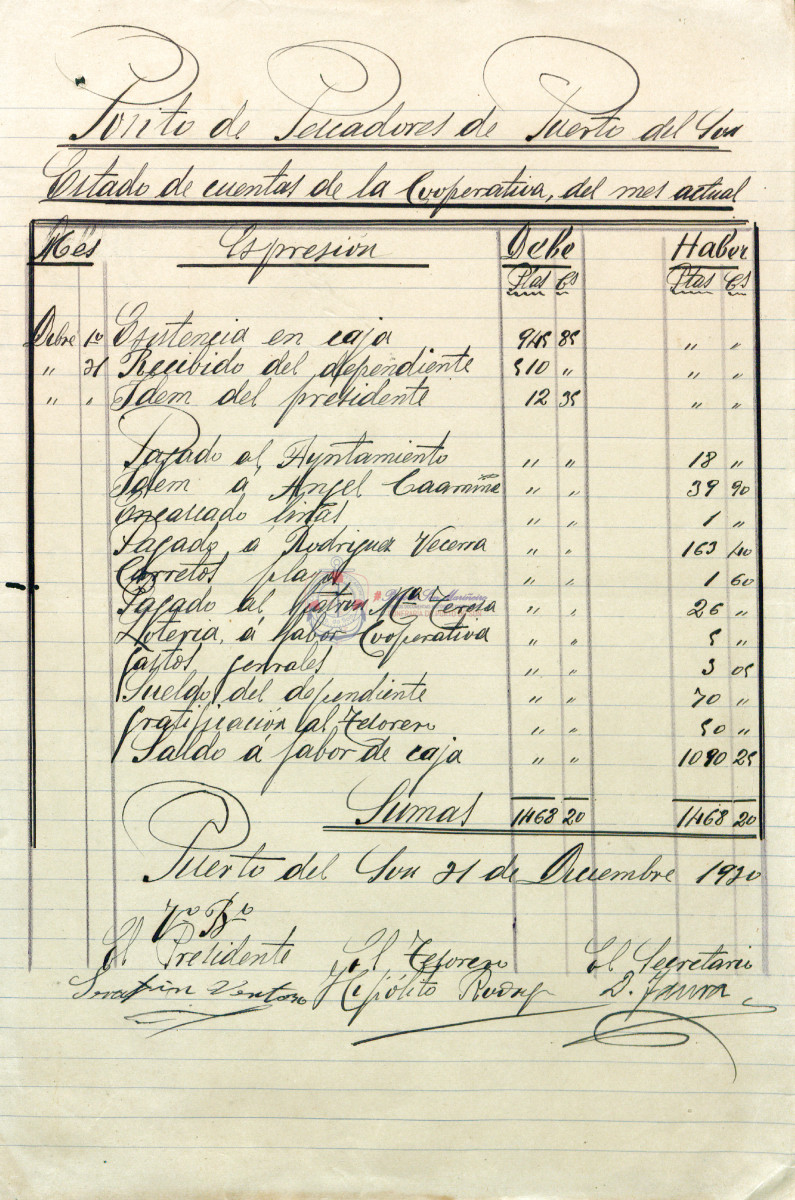 Posito de Pescadores de Puerto del Son
Estado de cuentas de la Cooperativa, del mes actual
Mes Espresión Debe Haber
Ptas Cs Ptas Cs
Dcbre 1º Esistencia en caja 945 85 " "
" 31 Recibido del dependiente 510 " " "
" " Idem del presidente 12 35 " "
Pagado al Ayuntamiento " " 18 "
Idem á Angel Caamiñe " " 39 90
" " 1 "
Pagado á Rodriguez Vecerra " " 163 40
Carretos playa " " 1 60
Pagado al Patron Mª Teresa " " 26 "
Loteria, á fabor Cooperativa " " 5 "
gastos genrales " " 3 05
Sueldo del dependiente " " 70 "
gratificación al Tesorero " " 50 "
Saldo á fabor de caja " " 1090 25
Sumas 1468 20 1468 20
Puerto del Son 31 de Diciembre 1930
Vº Bº
El Presidente El Tesorero El Secretario
Serafin Ventoso Hipólito Rodrg D.